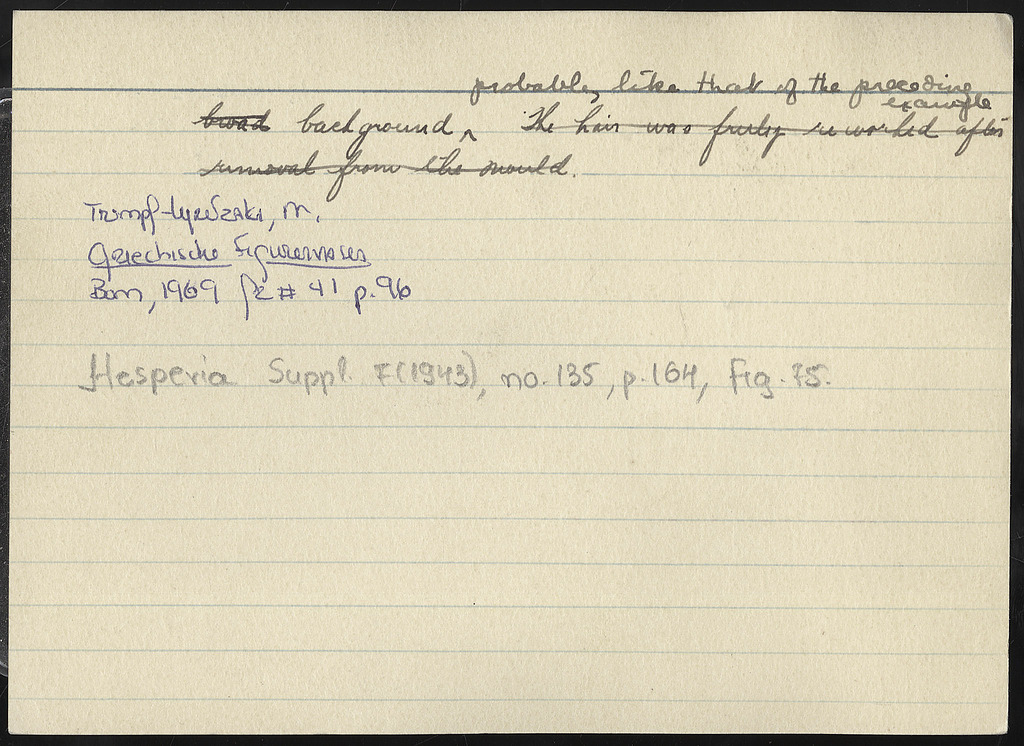 probably like that of the preceding
example
broad background ^ The hair was freely reworked after
removal from the mould.
Trumpf-Lyritzaki, M.
Griechische Figurenvasen
Bonn, 1969 # 41 p. 96
Hesperia Suppl. 7 (1943), no. 135, p. 164, fig. 75.